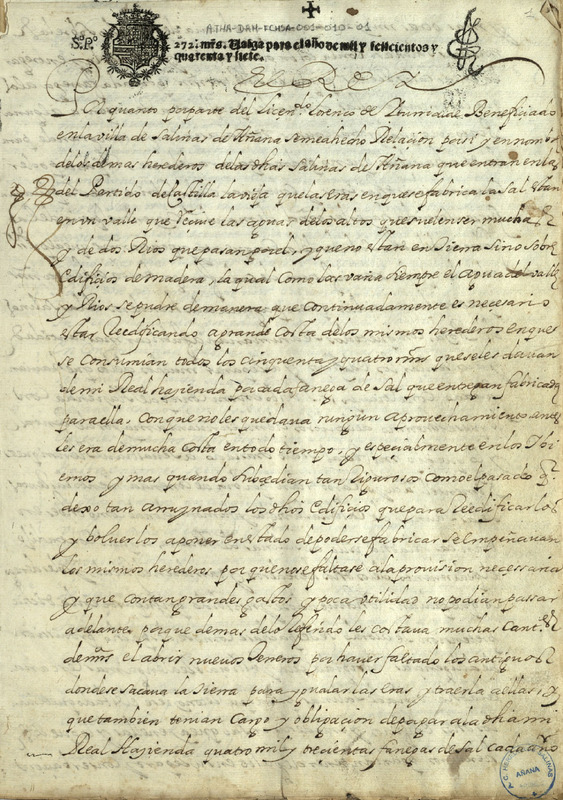 ATHA-DAH-FCHSA-001-010-01
Sº.Pº
272. mrs. Valga para el año de mil y seiscientos y
quarenta y siete.
El Rey
Por quanto por parte del Licendo Lorenco de Yturricalde Beneficiado
en la villa de Salinas de Añana se me a hecho Relacion por si y en nombre
de los demas herederos de las dhas Salinas de Añana que entran en las
del Partido de Castilla la vieja que las eras en que se fabrica la Sal estan
en vn valle que Reciue las aguas de los altos que suelen ser muchas
y de dos Rios que pasan por el, y que no estan en tierra sino sobre
Edificios de madera, la qual Como las vaña siempre el agua del valle
y Rios se pudre de manera que Continuadamente es necesario
estar Reedificando a grande Costa de los mismos herederos en que
se Consumian todos los cinquenta y quatro mrs que se les dauan
de mi Real hazienda por cada fanega de Sal que entregan fabricada
para ella, Con que no les quedaua ningun aprouechamiento antes
les era de mucha Costa en todo tiempo, y especialmente en los Ybi
ernos y mas quando subcedian tan Rigurosos como el pasado q.
dexo tan arruynados los dhos Edificios que para Reedificarlos
y boluerlos a poner en estado de poderse fabricar se Empeñauan
los mismos herederos, por que no se faltase a la prouision necessaria
y que con tan grandes gastos y poca vtilidad no podian passar
adelante, porque demas de lo Referido les costaua muchas Cant.des
de mrs el abrir nuevos veneros por hauer faltado los antiguos
donde se sacaua la tierra para ygualar las eras y traerla a ellas, y
que tambien tenian Cargo y obligacion de pagar a la dha mi
Real Hazienda quatro mil y trecientas fanegas de Sal cada año
AÑANA